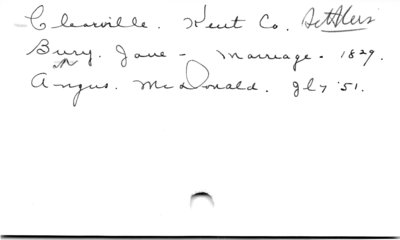 Clearville. Kent Co. Settlers
Bury. Jane - Marriage. 1829.
Angus. McDonald. gly '51.